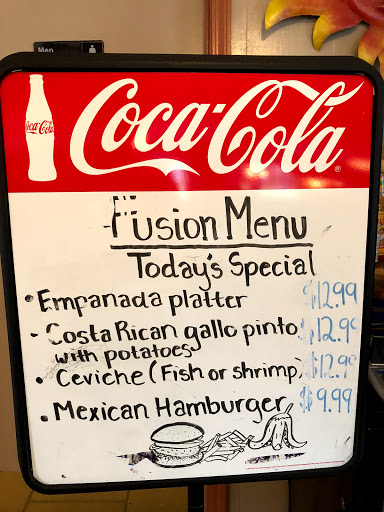 Men
Coca-Cola
Coca-Cola
Fusion Menu
Today's Special
• Empanada platter $12.99
- Costa Rican gallo pinto $12.99
with potatoes
• Ceviche (Fish or shrimp) $12.99
• Mexican Hamburger $9.99